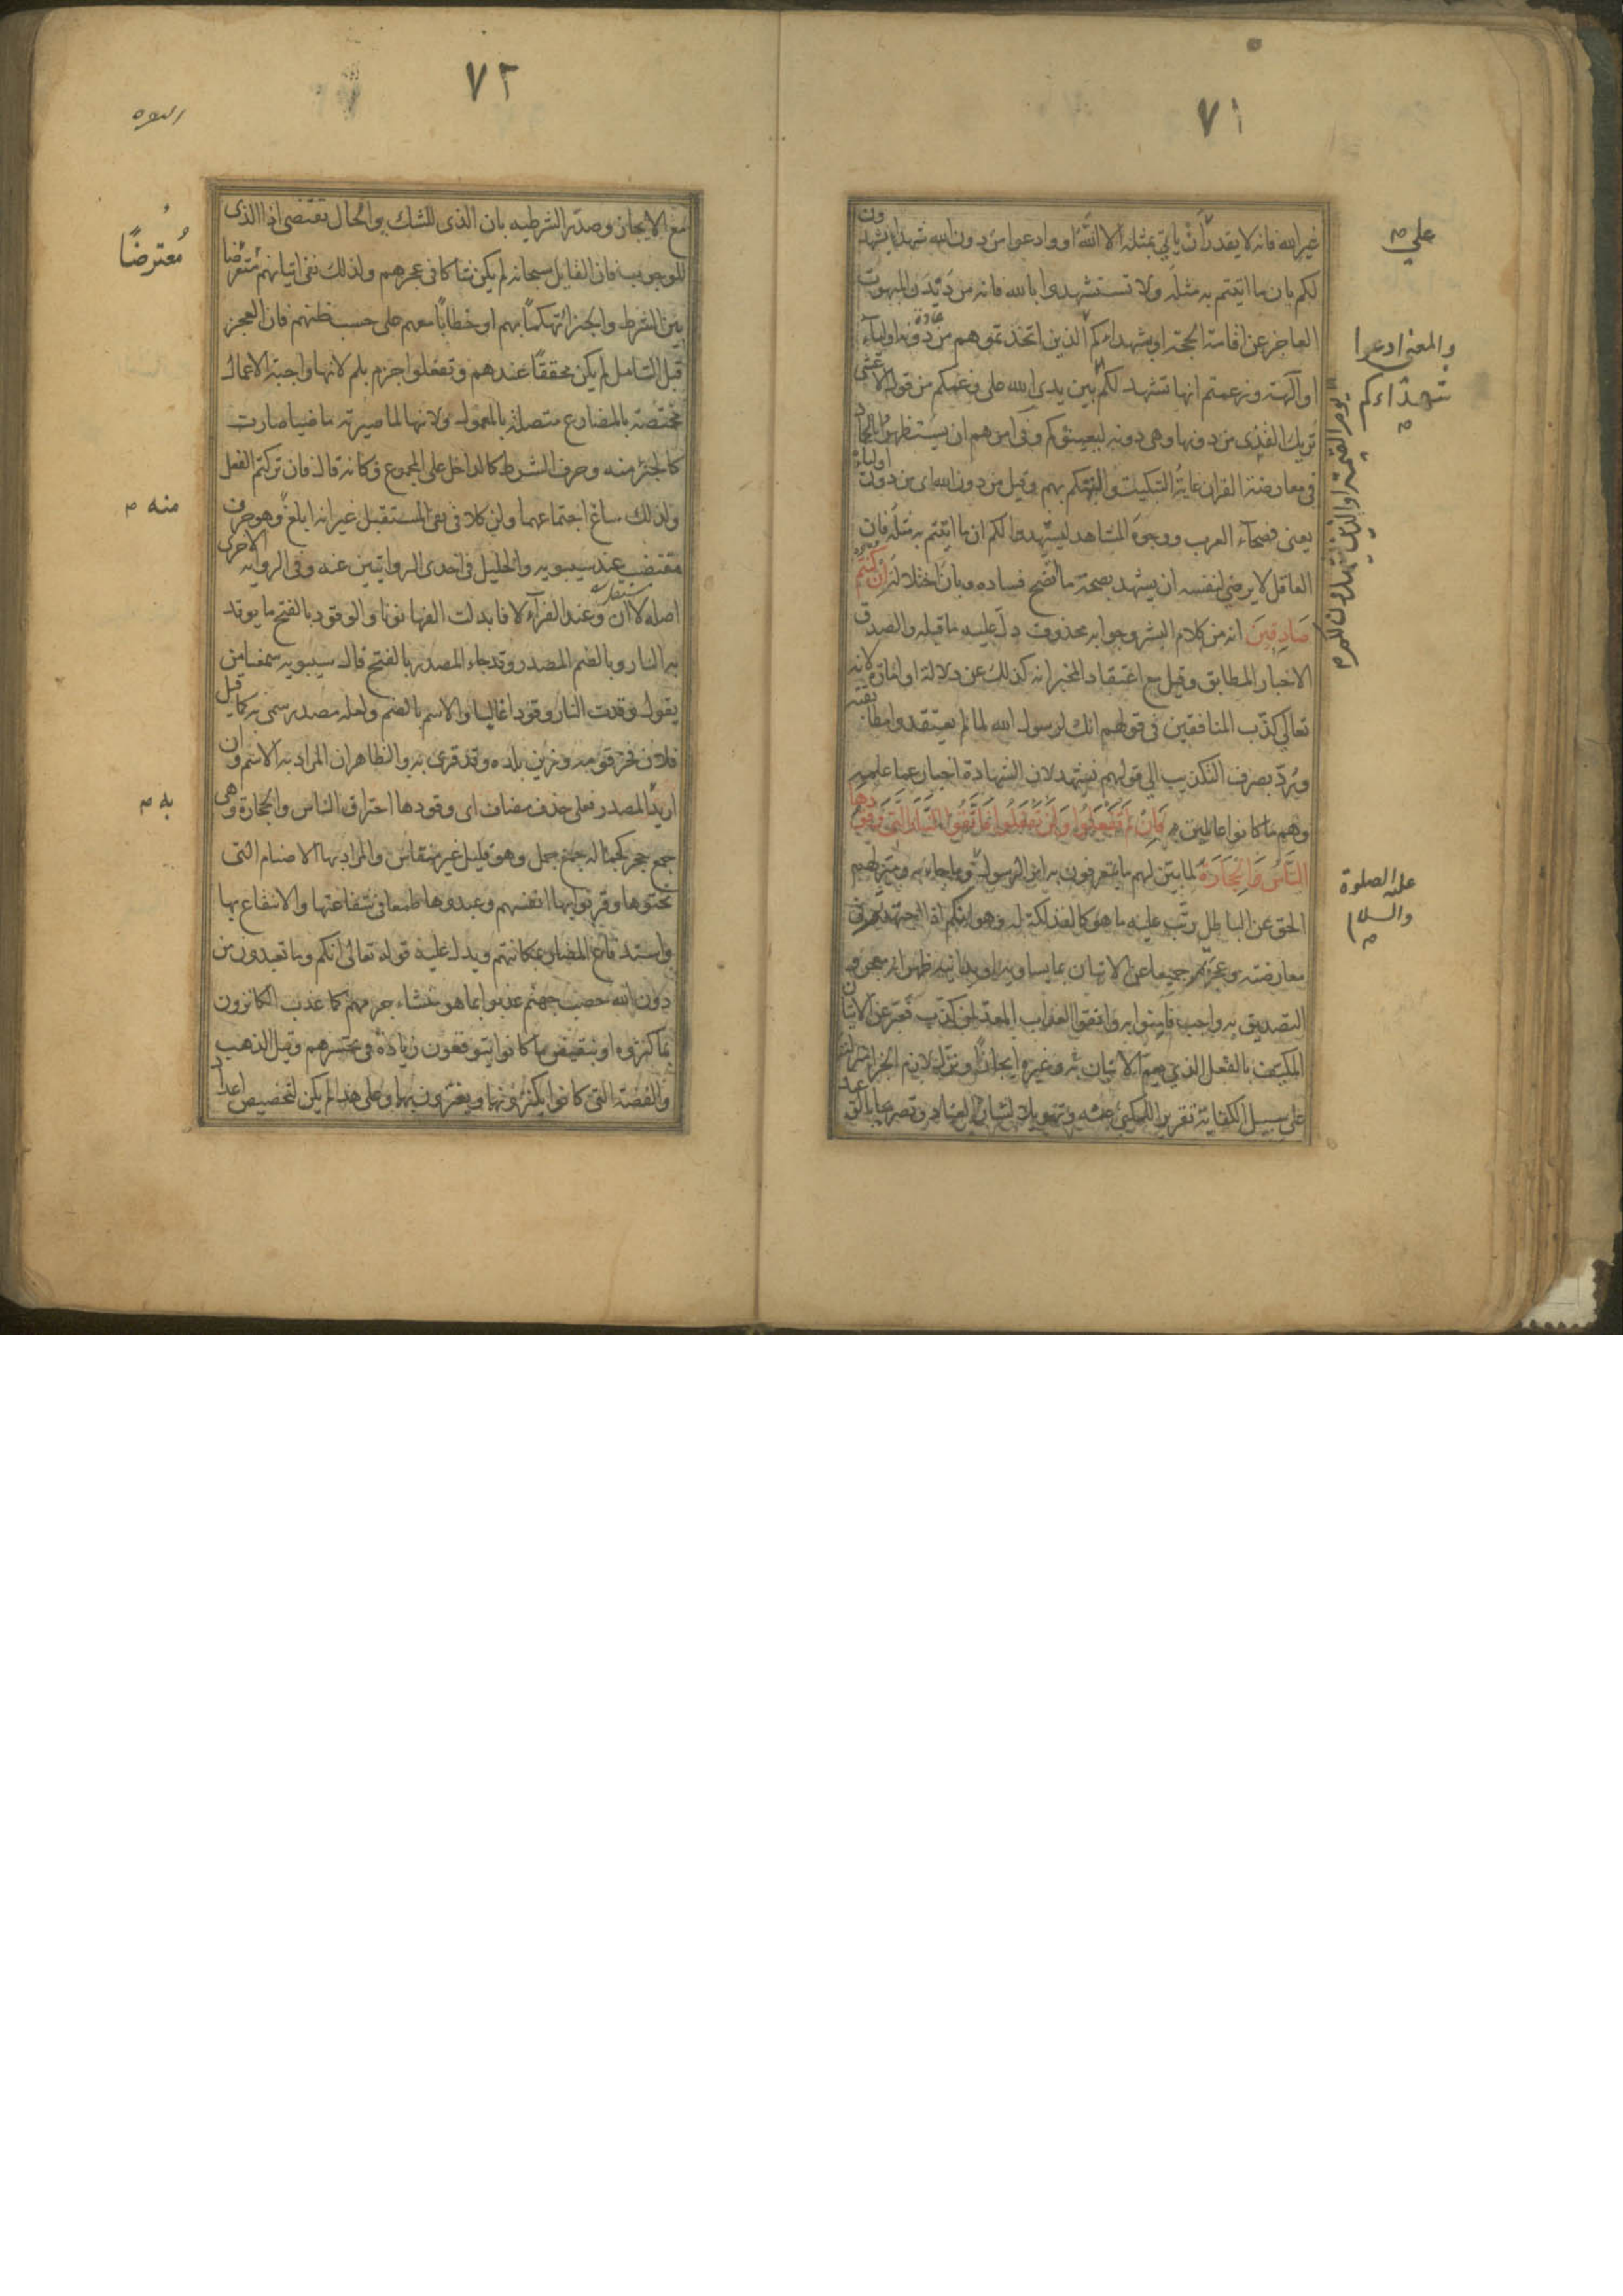 ٧١
غير الله فانه لا يقدر ان ياتي بمثله الا الله او وادعوا من دون الله شهداء يشهدون
لكم بان ما اتيتم به مثله ولا تستشهدوا بالله فانه من ديدن المبهوت
العاجز عن اقامة الحجة او بشهداءكم الذين اتخذتموهم من دونه اولياء
او آلهة وزعمتم انها تشهد لكم بين يدي الله على زعمكم من قول الاعشى
تريك القذى من دونها وهي دونه ليعينوكم وفي امرهم ان يستظهروا بالجماد
في معارضة القران غاية التبكيت والتهكم بهم وقيل من دون الله اي من دون اوليائه
يعني فصحاء العرب ووجوه المشاهد ليشهدوا لكم ان ما اتيتم به مثله فان
العاقل لا يرضى لنفسه ان يشهد بصحة ما اتضح فساده وبان اختلاله ان كنتم
صادقين انه من كلام البشر وجوابه محذوف دل عليه ما قبله والصدق
الاخبار المطابق وقيل مع اعتقاد المخبر انه كذلك عن دلالة او امارة لانه
تعالى كذب المنافقين في قولهم انك لرسول الله لما لم يعتقدوا مطابقته
ورد بصرف التكذيب الى قولهم نشهد لان الشهادة اخبار عما علمه
وهم ما كانوا عالمين به فان لم تفعلوا ولن تفعلوا فاتقوا النار التي وقودها
الناس والحجارة لما بين لهم ما يتعرفون به امر الرسول وما جاء به وميز لهم
الحق عن الباطل رتب عليه ما هو كالفذلكة له وهو انكم اذا اجتهدتم في
معارضته وعجزتم جميعا عن الاتيان بما يساويه او يدانيه ظهر انه معجز و
التصديق به واجب فآمنوا به واتقوا العذاب المعد لمن كذب فعبر عن الاتيان
المكيف بالفعل الذي يعم الاتيان به وغيره ايجازا ونزل لازم الجزاء منزلته
على سبيل الكناية تقريرا للمكني عنه وتهويلا لشان العناد وتصريحا بالوعيد
علي م
والمعنى ادعوا
شهداءكم
م
عليه الصلوة
والسلام
م
٧٢
مع الايجاز وصدر الشرطيه بان الذي للشك والحال تقتضي اذا الذي
للوجوب فان القايل سبحانه لم يكن شاكا في عجزهم ولذلك نفى اتيانهم متعرضا
بين الشرط والجزاء تهكما بهم او خطابا معهم على حسب ظنهم فان العجز
قبل التامل لم يكن محققا عندهم وتفعلوا جزم بلم لانها واجبة الاعمال
مختصة بالمضارع متصلة بالمعمول ولانها لما صيرته ماضيا صارت
كالجزء منه وحرف الشرط كالداخل على المجموع وكانه قال فان تركتم الفعل
ولذلك ساغ اجتماعهما ولن كلا في نفي المستقبل غير انه ابلغ وهو حرف
مقتضب عند سيبويه والخليل في احدى الروايتين عنه وفي الرواية الاخرى
اصله لا ان وعند الفراء لا فابدلت الفها نونا والوقود بالفتح ما يوقد
به النار وبالضم المصدر وقد جاء المصدر بالفتح قال سيبويه سمعنا من
يقول وقدت النار وقودا عاليا والاسم بالضم ولعله مصدر سمي به كما قيل
فلان فخر قومه وزين بلده وقد قرئ به والظاهر ان المراد به الاسم وان
اريد المصدر فعلى حذف مضاف اي وقودها احتراق الناس والحجارة وهي
جمع حجر كجمالة جمع جمل وهو قليل غير منقاس والمراد بها الاصنام التي
نحتوها وقرنوا بها انفسهم وعبدوها طمعا في شفاعتها والانتفاع بها
واستدفاع المضار بمكانتهم ويدل عليه قوله تعالى انكم وما تعبدون من
دون الله حصب جهنم عذبوا بما هو منشاء جرمهم كما عذب الكانزون
بما كنزوه او بنقيض ما كانوا يتوقعون زيادة في تحسرهم وقيل الذهب
والفضة التي كانوا يكنزونها ويغترون بها وعلى هذا لم يكن لتخصيص اعداد
مُعترضًا
منه م
به م